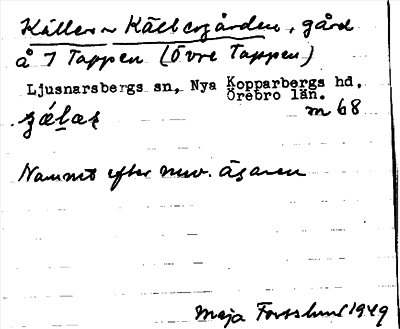 Källers ~ Källersgården, gård
å 7 Tappen (Övre Tappen)
Ljusnarsbergs sn, Nya Kopparbergs hd,
Örebro län.
m 68
Namnet efter nuv. ägaren
Maja Forsslund 1949